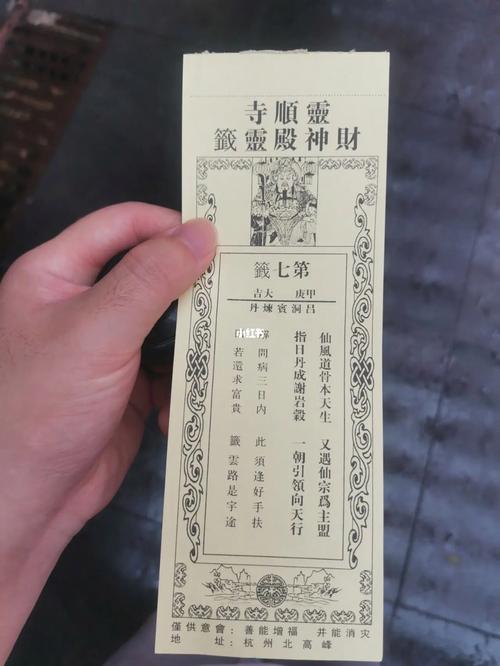 靈順寺
財神殿靈籤
第七籤
甲庚 大吉
吕洞賓煉丹
仙風道骨本天生 又遇仙宗爲主盟
指日丹成謝岩穀 一朝引領向天行
問病三日内 此須逢好手扶
若還求富貴 籤 雲路是宇途
小红书
僅供意會：善能增福 井能消灾
地址：杭州北高峰